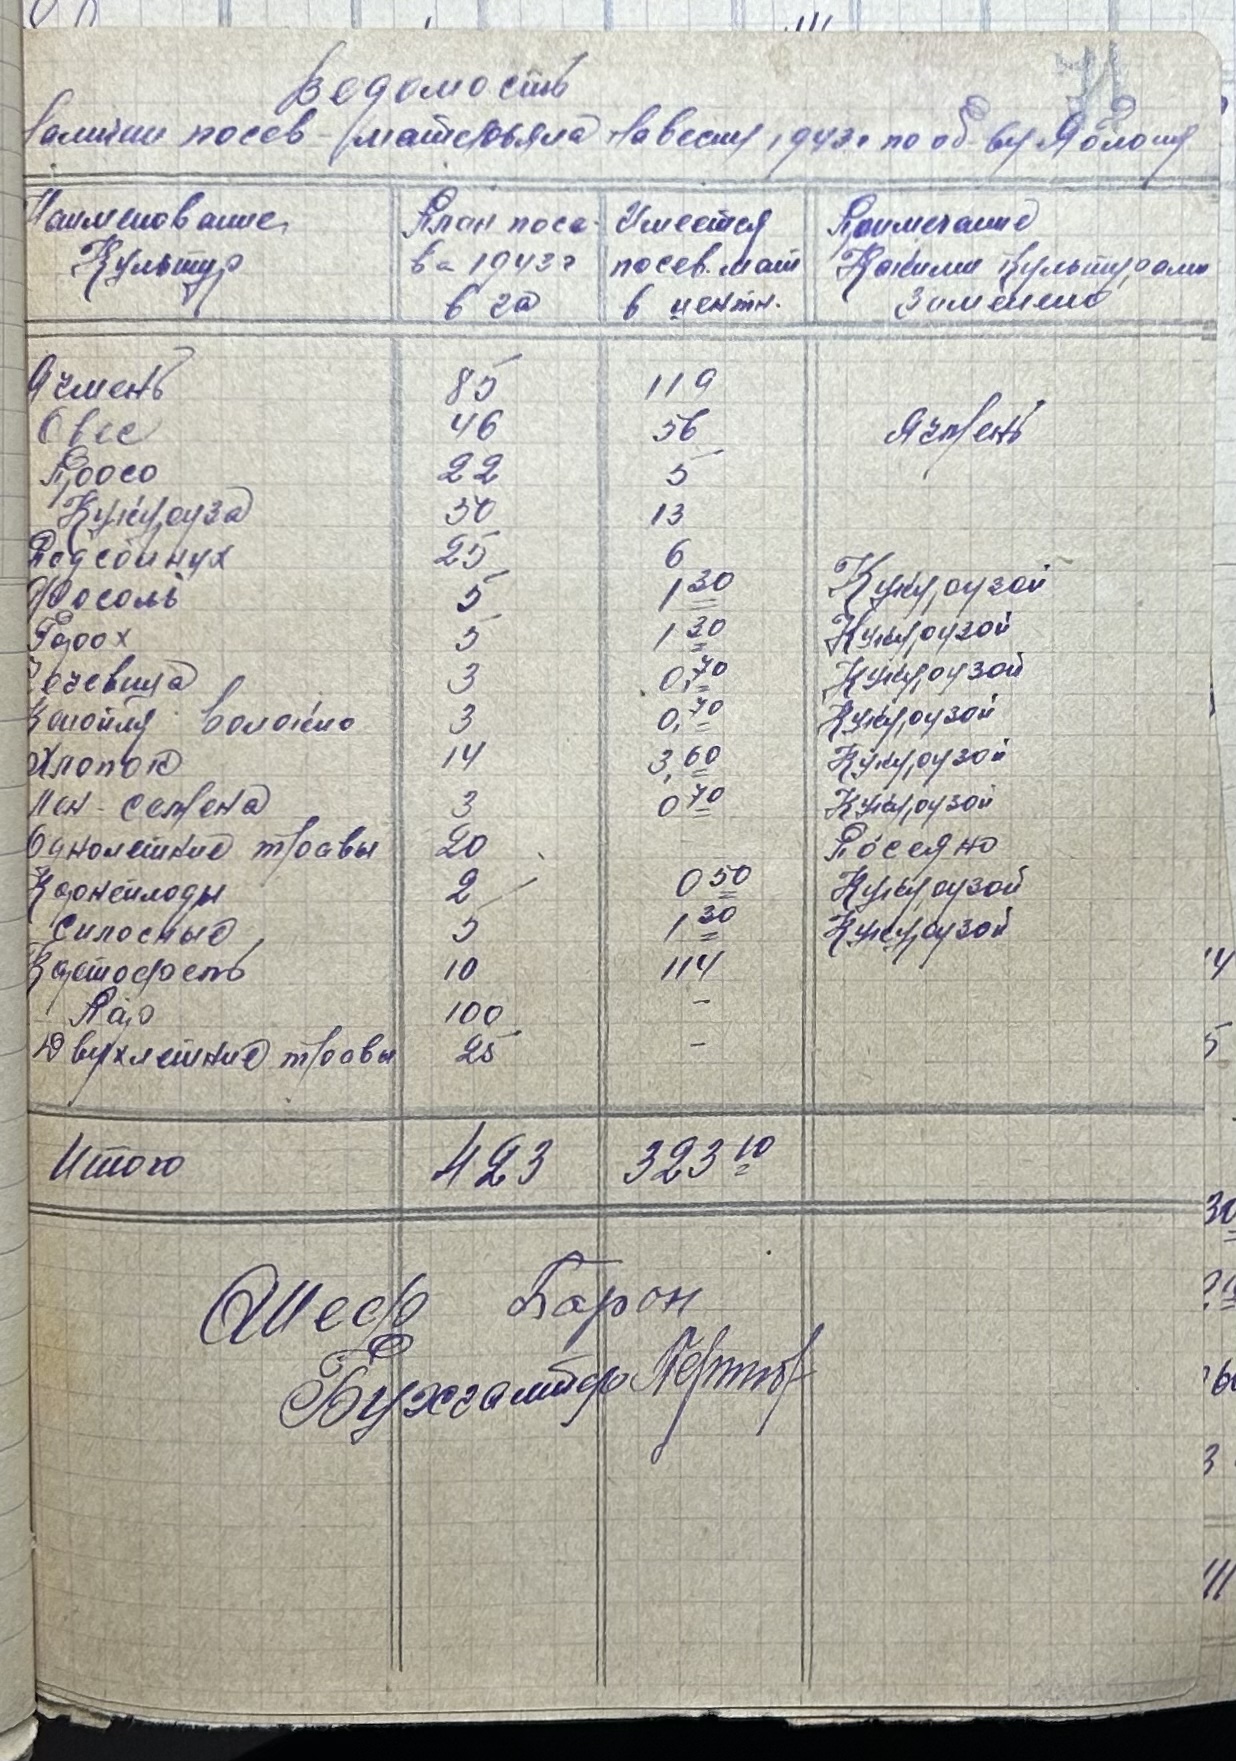 Ведомость
наличии посев-матерьяла на весну 1943 г по об-ву Яблоня
Наименование Культур
План посева 1943 г в га
Имеется посев. мат в центн.
Примечание Какими Культурами Заменено
Ячмень 85 119
Овес 46 56 Ячмень
Просо 22 5
Кукуруза 50 13
Подсолнух 25 6
Фосоль 5 1 30 Кукурузой
Горох 5 1 30 Кукурузой
Чечевица 3 0,70 Кукурузой
Конопля волокно 3 0,70 Кукурузой
Хлопок 14 3,60 Кукурузой
Лен-семена 3 0 70 Кукурузой
Однолетние травы 20 Посеяно
Корнеплоды 2 0 50 Кукурузой
Силосные 5 1 30 Кукурузой
Картофель 10 114
Пар 100 -
Двухлетние травы 25 -
Итого 423 323 10
Шеф Барон
Бухгалтер